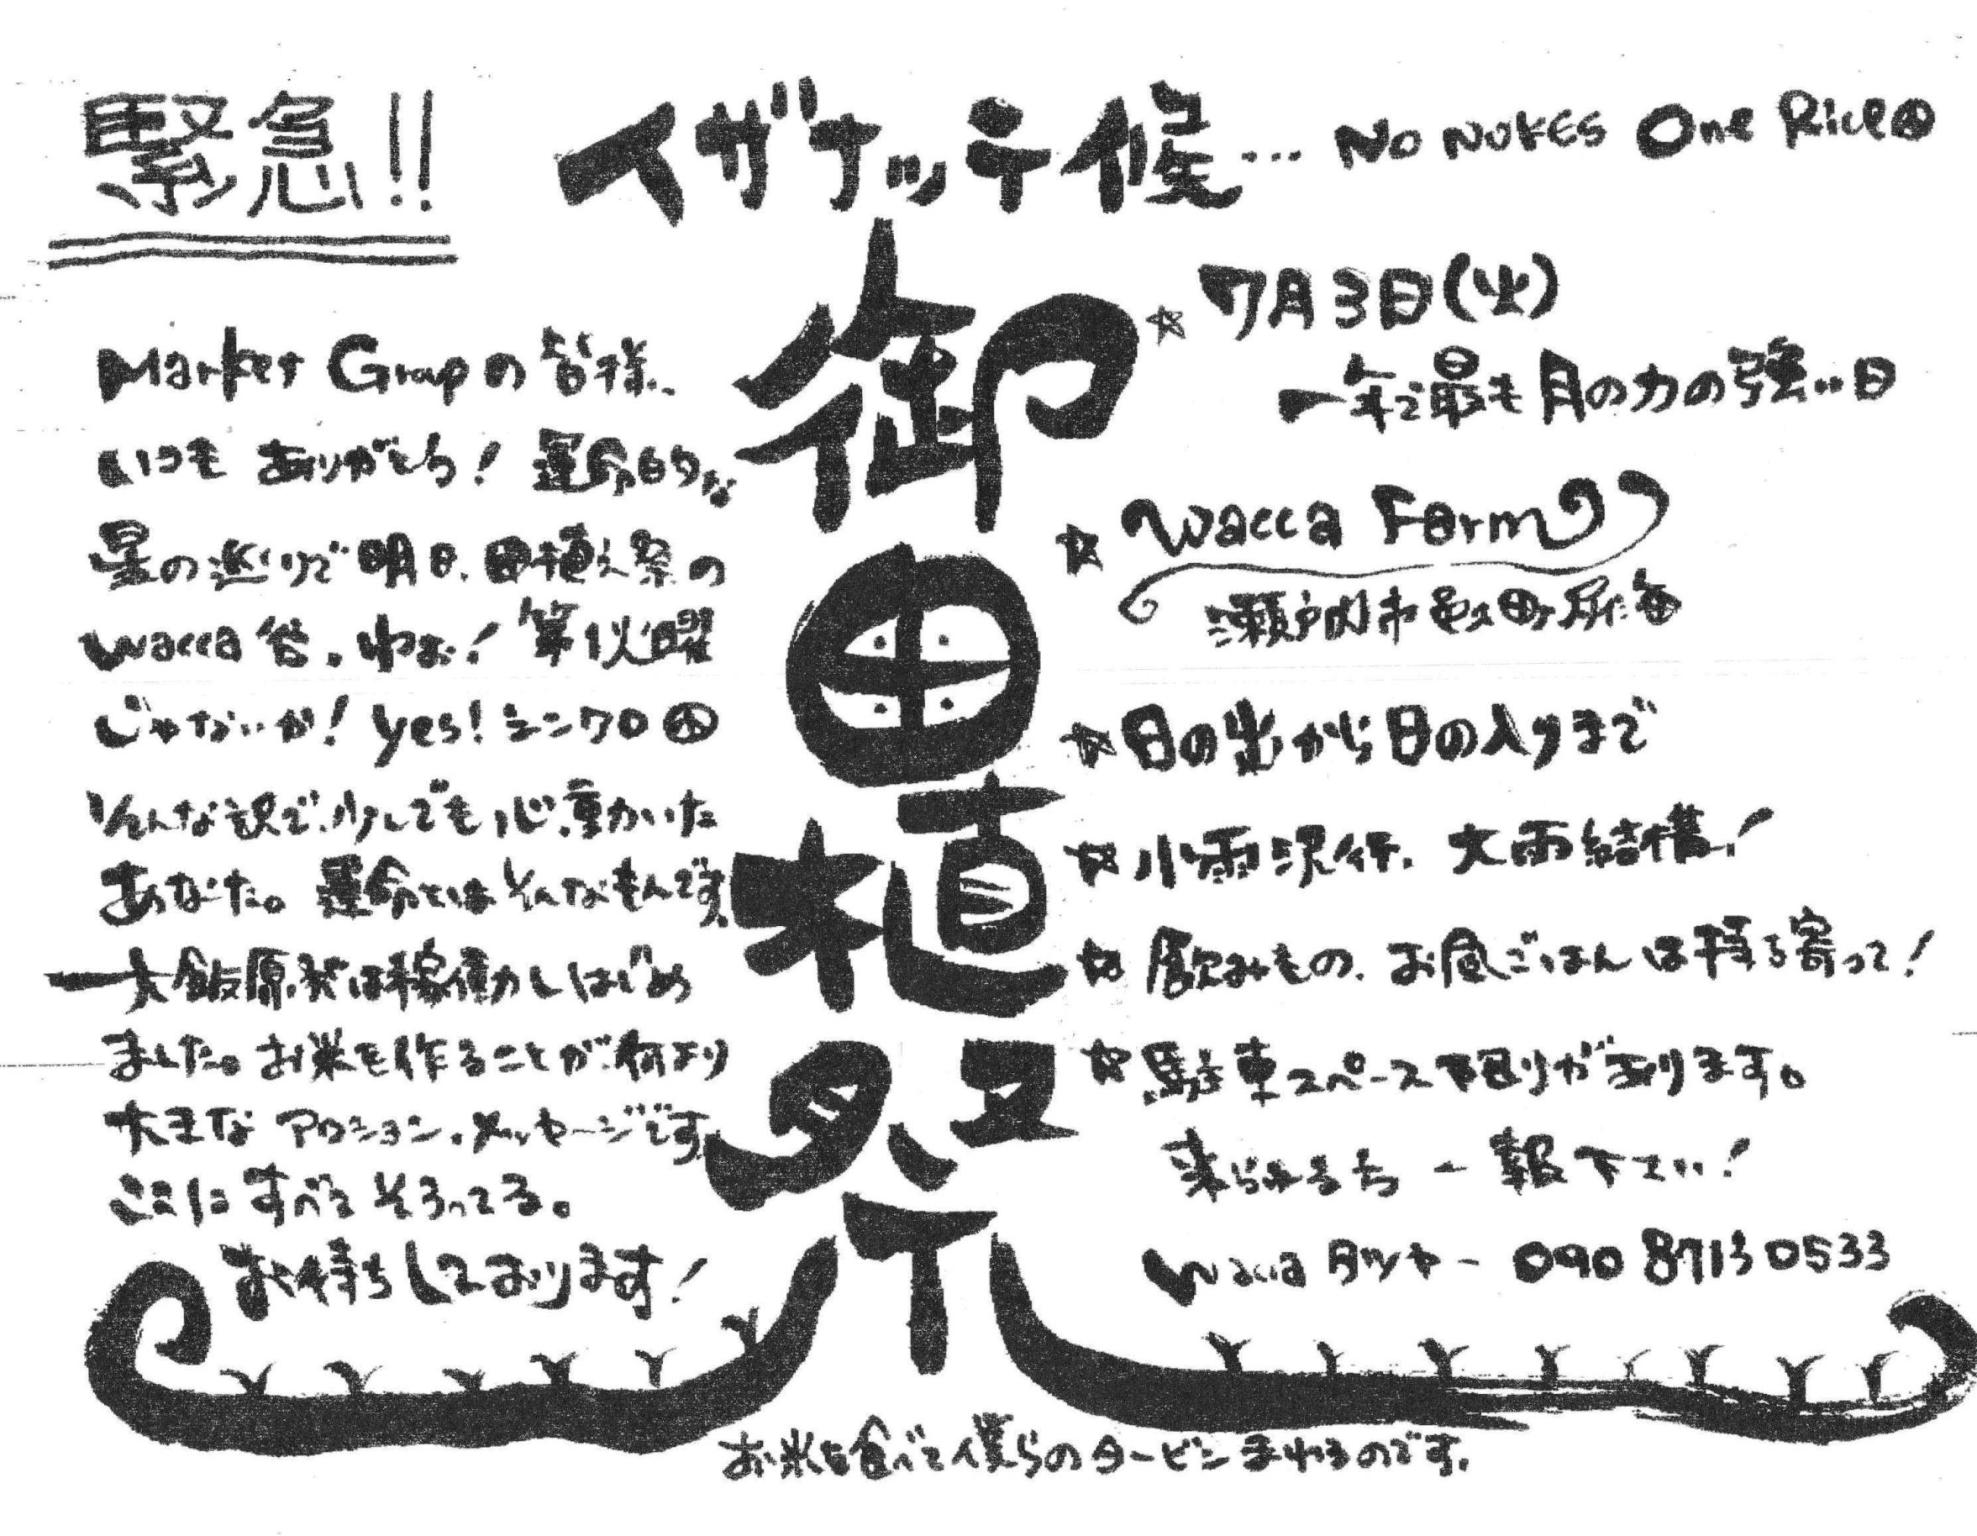 緊急!!
イザナッテ候... No NUKES One Rice
御田植祭
Market Groupの皆様、
いつも ありがとう! 運命的な
星の巡りで 明日、田植え祭の
wacca谷。わお! 第1火曜
じゃないか! yes! シンクロ
そんな訳で、少しでも心動いた
あなた。運命とはそんなもんです。
大飯原発は稼働しはじめ
ました。お米を作ることが何より
大きな アクション。メッセージです。
ここに すべて そろってる。
お待ちしております!
☆ 7月3日(火)
一年で最も月の力の強い日
☆ Wacca Farm
瀬戸内市邑久町尻海
☆ 日の出から日の入りまで
☆ 小雨決行、大雨結構!
☆ 飲みもの、お昼ごはんは持ち寄って!
☆ 駐車スペース限りがあります。
来られる方 一報下さい!
Wacca タツヤ - 090 8713 0533
お米を食べて僕らのタービンまわるのです。